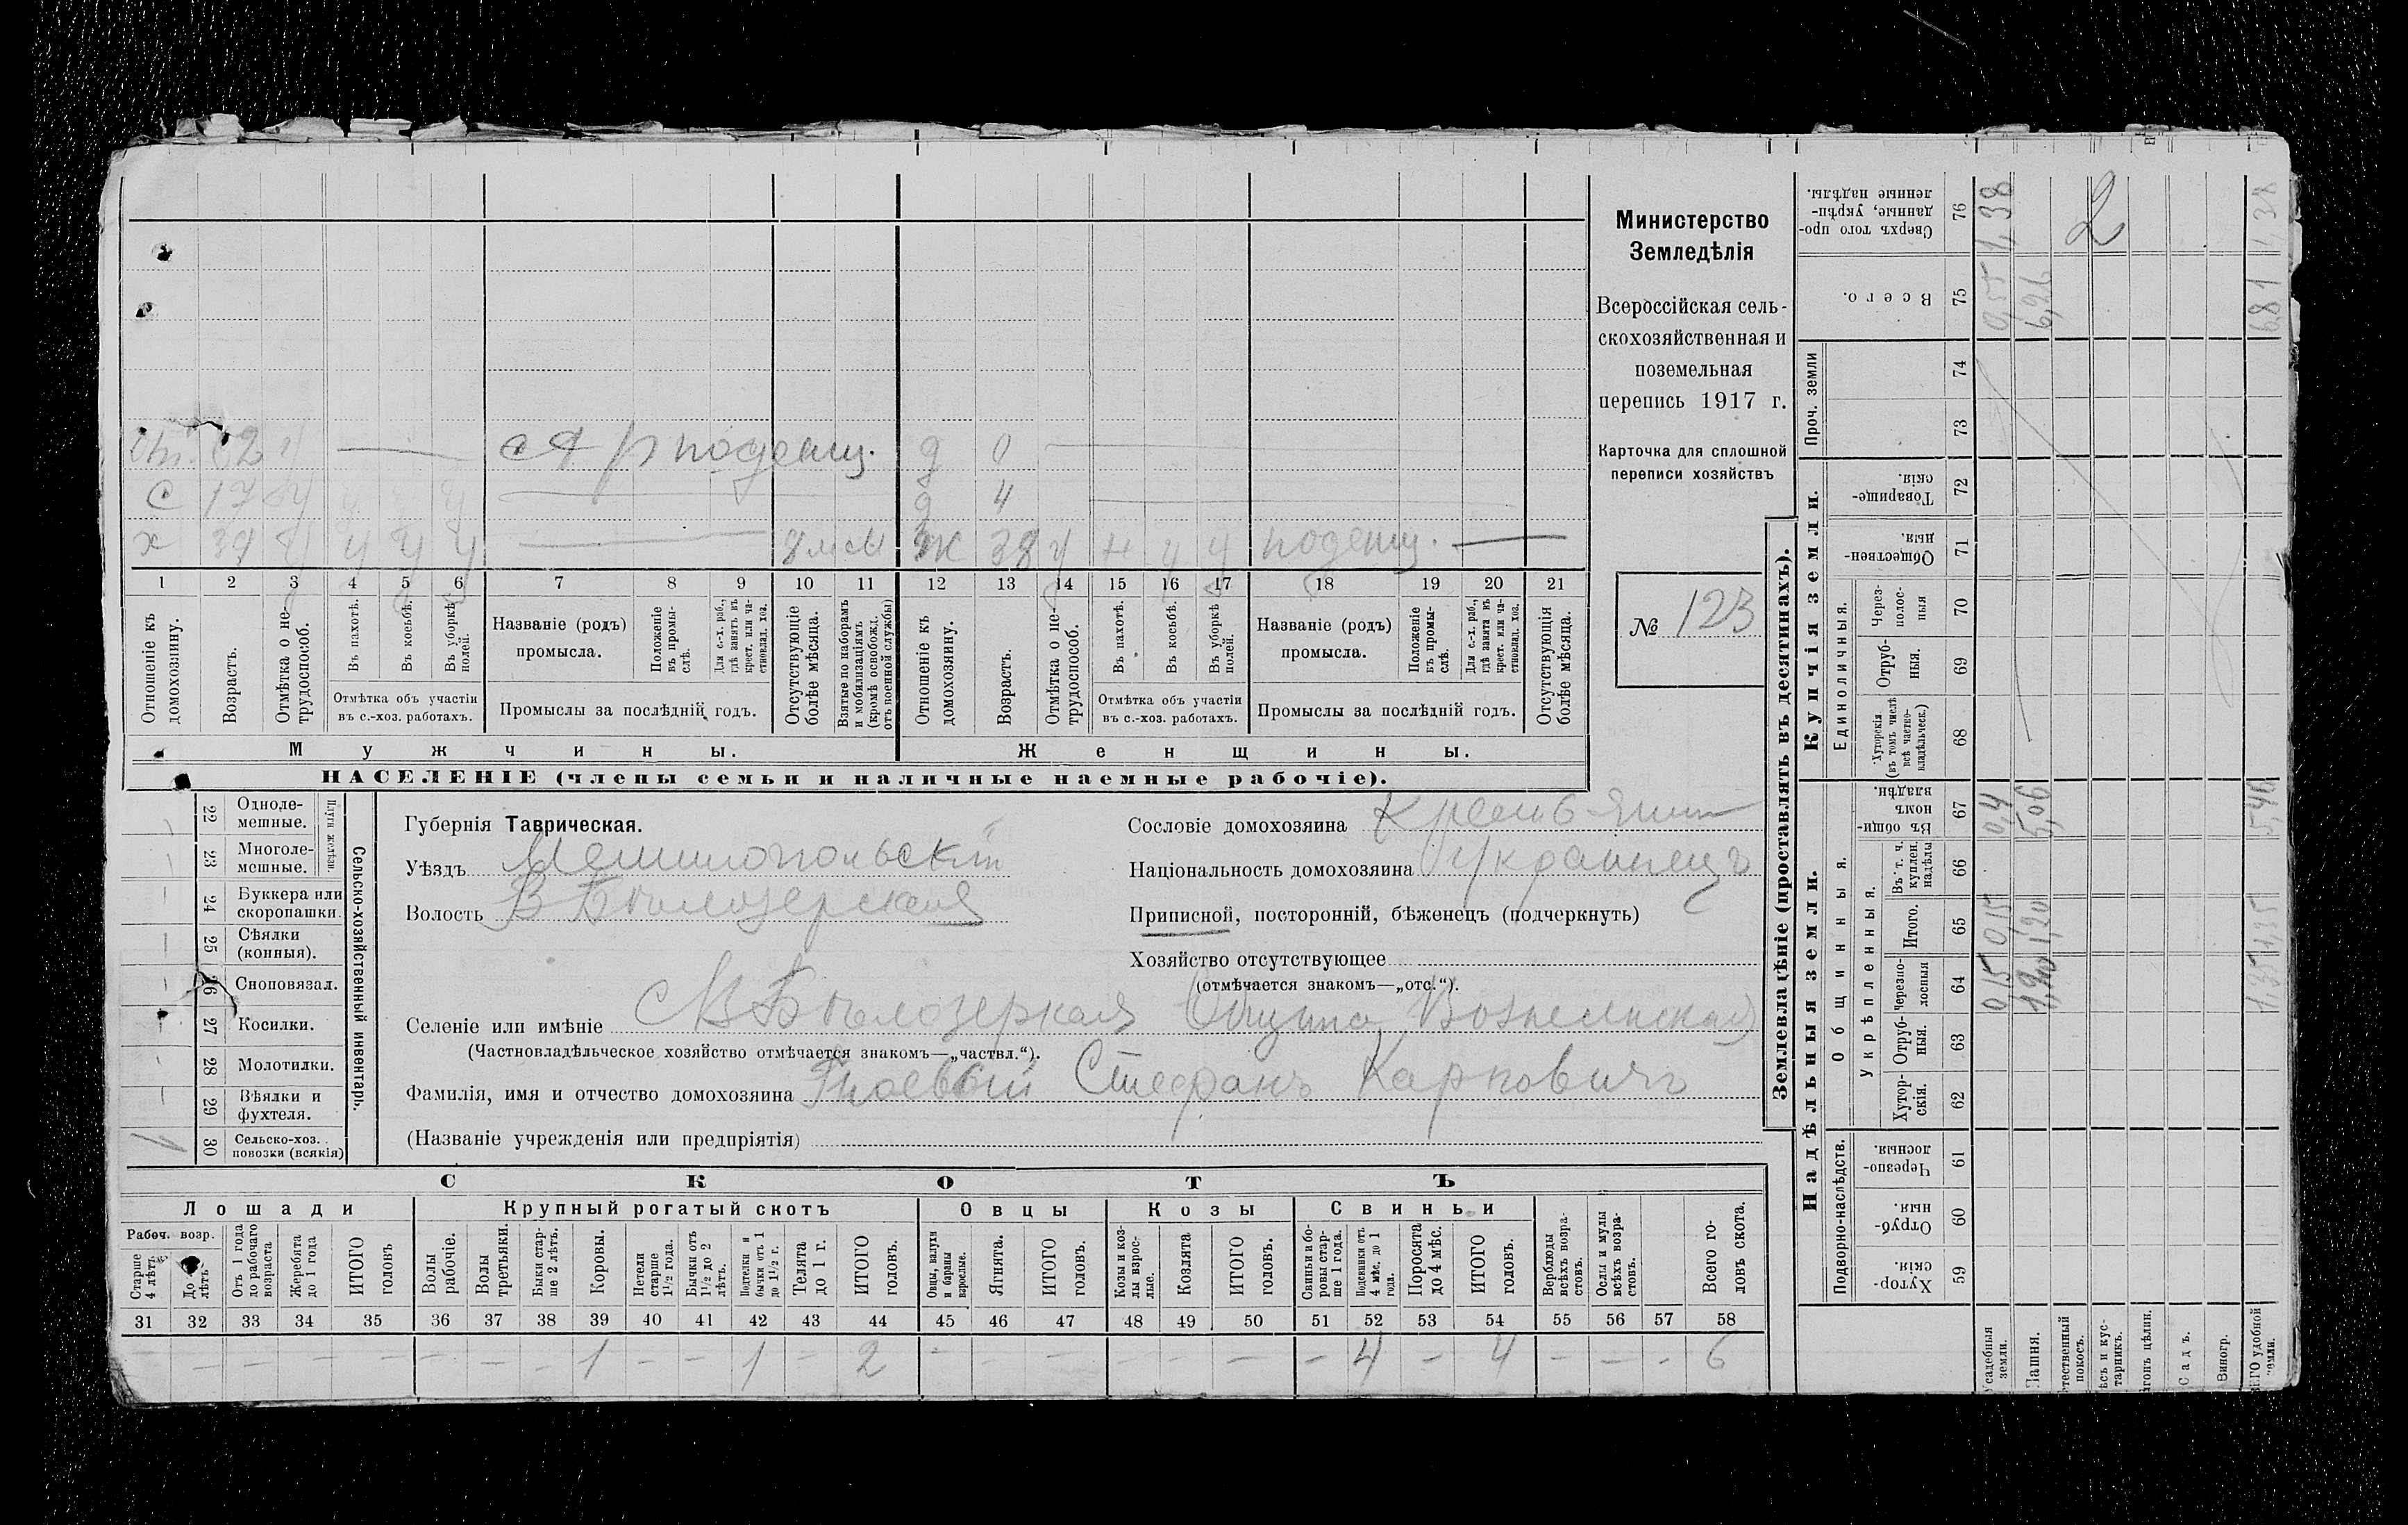 Министерство
Земледѣлія
Всероссійская сель-
скохозяйственная и
поземельная
перепись 1917 г.
Карточка для сплошной
переписи хозяйствъ
№ 123
с р поденщ. д 0
С 17 д 4
х 39 8 м ж 38 поденщ.
1 2 3 4 5 6 7 8 9 10 11 12 13 14 15 16 17 18 19 20 21
Отношеніе къ домохозяину.
Возрастъ.
Отмѣтка о не-трудоспособ.
Въ пахотѣ.
Въ косьбѣ.
Въ уборкѣ полей.
Отмѣтка объ участіи
въ с.-хоз. работахъ.
Названіе (родъ)
промысла.
Положеніе въ промы-слѣ.
Для с.-х. раб., гдѣ занятъ въ крест. или ча-стновлад. хоз.
Промыслы за послѣдній годъ.
Отсутствующіе болѣе мѣсяца.
Взятые по наборамъ и мобилизаціямъ (кромѣ освобожд. отъ военной службы)
Отношеніе къ домохозяину.
Возрастъ.
Отмѣтка о не-трудоспособ.
Въ пахотѣ.
Въ косьбѣ.
Въ уборкѣ полей.
Отмѣтка объ участіи
въ с.-хоз. работахъ.
Названіе (родъ)
промысла.
Положеніе въ промы-слѣ.
Для с.-х. раб., гдѣ занята въ крест. или ча-стновлад. хоз.
Промыслы за послѣдній годъ.
Отсутствующія болѣе мѣсяца.
Мужчины.
Женщины.
НАСЕЛЕНІЕ (члены семьи и наличные наемные рабочіе).
Сельско-хозяйственный инвентарь.
Плуги желѣзн.
22 Одноле-мешные.
23 Многоле-мешные.
24 Буккера или скоропашки.
25 Сѣялки (конныя).
26 Сноповязал.
27 Косилки.
28 Молотилки.
29 Вѣялки и фухтеля.
30 Сельско-хоз. повозки (всякія) 1
Губернія Таврическая.
Уѣздъ Мелитопольскій
Волость В Бѣлозерская
Сословіе домохозяина Крестьянин
Національность домохозяина Украинецъ
Приписной, посторонній, бѣженецъ (подчеркнуть)
Хозяйство отсутствующее
(отмѣчается знакомъ—„отс.“).
Селеніе или имѣніе Бѣлозерка Община Вознесенская
(Частновладѣльческое хозяйство отмѣчается знакомъ—„частвл.“).
Фамилія, имя и отчество домохозяина Гноевый Стефанъ Карповичъ
(Названіе учрежденія или предпріятія)
СКОТЪ
Лошади
Крупный рогатый скотъ
Овцы
Козы
Свиньи
Рабоч. возр.
Старше 4 лѣтъ.
До 4 лѣтъ
Отъ 1 года до рабочаго возраста
Жеребята до 1 года
ИТОГО головъ
Волы рабочіе.
Волы третьяки.
Быки стар-ше 2 лѣтъ.
Коровы.
Нетели старше 1½ года.
Бычки отъ 1½ до 2 лѣтъ.
Подтелки и бычки отъ 1 до 1½ г.
Телята до 1 г.
ИТОГО головъ.
Овцы, валухи и бараны взрослые.
Ягнята.
ИТОГО головъ.
Козы и коз-лы взрос-лые.
Козлята
ИТОГО головъ.
Свиньи и бо-ровы стар-ше 1 года.
Подсвинки отъ 4 мѣс. до 1 года.
Поросята до 4 мѣс.
ИТОГО головъ.
Верблюды всѣхъ возра-стовъ.
Ослы и мулы всѣхъ возра-стовъ.
Всего го-ловъ скота.
31 32 33 34 35 36 37 38 39 40 41 42 43 44 45 46 47 48 49 50 51 52 53 54 55 56 57 58
– – – – – – – – 1 – – 1 – 2 – – – – – – – 4 – 4 – – – 6
Землевладѣніе (проставлять въ десятинахъ).
Надѣльныя земли.
Купчія земли.
Проч. земли
Подворно-наслѣдств.
Общинныя.
Укрѣпленныя.
Единоличныя.
Хутор-скія. 59
Отруб-ныя. 60
Черезпо-лосныя 61
Хутор-скія. 62
Отруб-ныя. 63
Черезпо-лосныя 64
Итого. 65
Въ т. ч. куплен. надѣлы 66
Въ общи-номъ владѣн. 67
Хуторскія (въ томъ числѣ всѣ частно-владѣльческ.) 68
Отруб-ныя. 69
Через-полос-ныя 70
Обществен-ныя. 71
Товарище-скія. 72
73
74
Всего. 75
Сверхъ того про-данные, укрѣп-ленные надѣлы. 76
Усадебныя земли. 0,15 0,15 0,4 0,55 1,38
Пашня. 1,20 1,20 5,06 6,26
тественный покосъ. 2
ѣсъ и кус-тарникъ.
гонъ цѣлин.
Садъ.
Виногр.
ЕГО удобной земли. 1,35 1,35 5,46 6,81 1,38